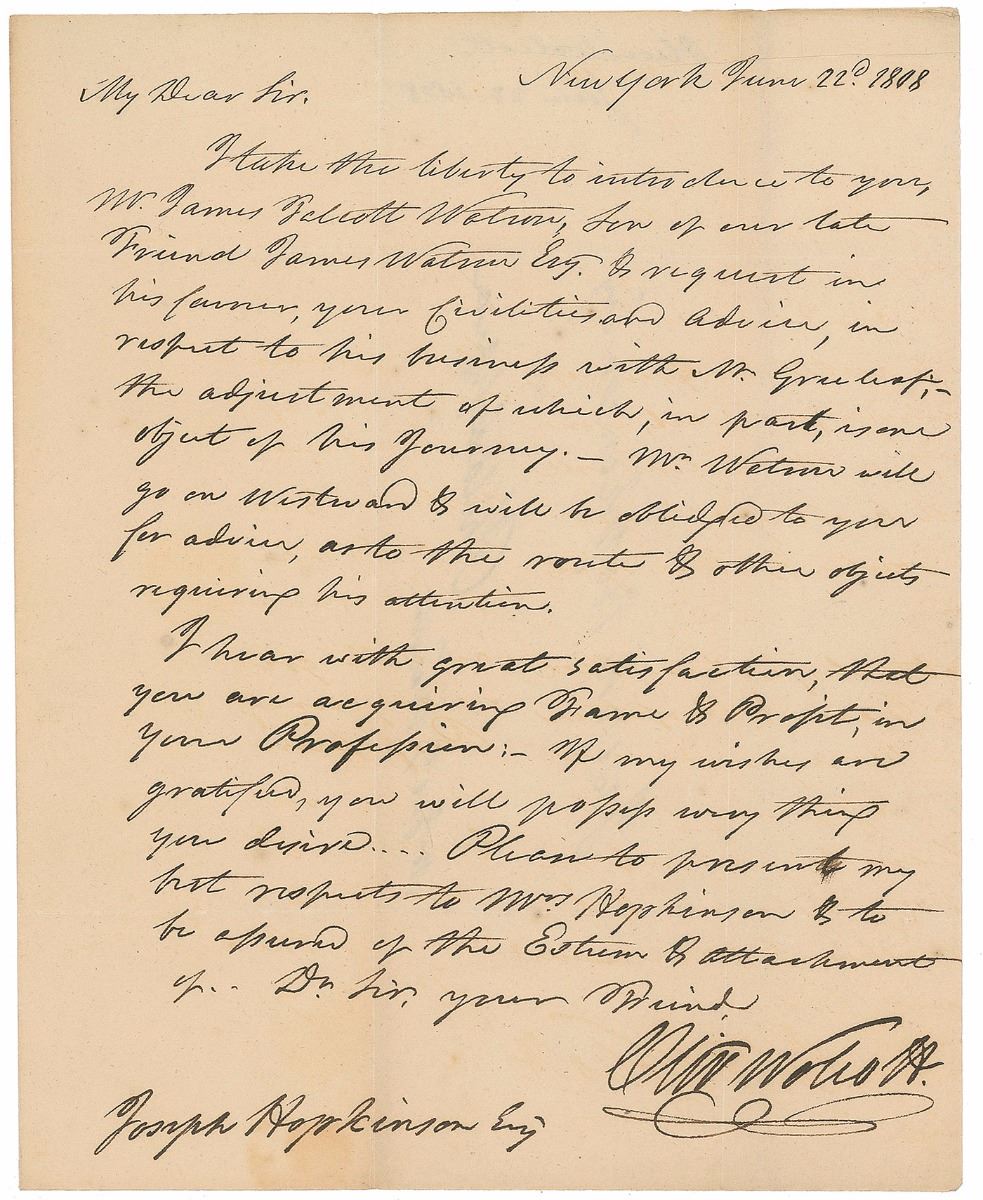 New York June 22d. 1808
My Dear Sir.
I take the liberty to introduce to you,
Mr. James Talcott Watson, Son of our late
Friend James Watson Esq. & request in
his favour, your Civilities and Advice, in
respect to his business with Mr. Greenleaf;—
the adjustment of which, in part, is one
object of his Journey.— Mr. Watson will
go on Westward & will be obliged to you
for advice, as to the route & other objects
requiring his attention.
I hear with great satisfaction, that
you are acquiring Fame & Profit, in
your Profession:— If my wishes are
gratified, you will possess every thing
you desire.... Please to present my
best respects to Mrs Hopkinson & to
be assured of the Esteem & attachment
of.. Dr. Sir, your Friend.
Oliv Wolcott.
Joseph Hopkinson Esq